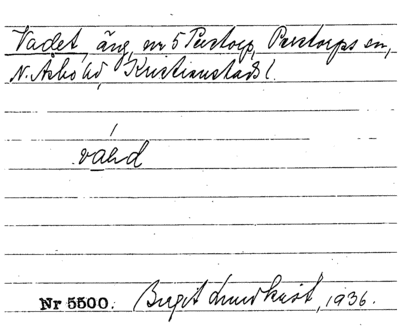 Vadet, äng, nr 5 Perstorp, Perstorps sn,
N. Åsbo hd, Kristianstads l.
vahd
Nr 5500. Birgit Lundkvist, 1936.